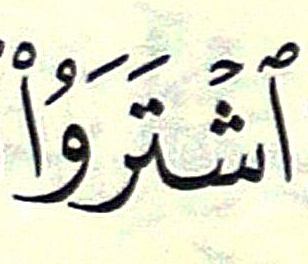 ٱشْتَرَوُا۟